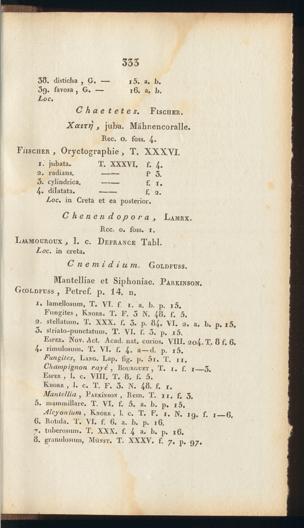 333
38. disticha, G. — 15. a. b.
39. favosa, G. — 16. a. b.
Loc.
Chaetetes. FISCHER.
Χαιτη, juba. Mähnencoralle.
Rec. 0. foss. 4.
FISCHER, Oryctographie, T. XXXVI.
1. jubata. T. XXXVI. f. 4.
2. radians. —— f 3.
3. cylindrica. —— f. 1.
4. dilatata. —— f. 2.
Loc. in Creta et ea posterior.
Chenendopora, LAMRX.
Rec. 0. foss. 1.
LAMOUROUX, l. c. DEFRANCE Tabl.
Loc. in creta.
Cnemidium. GOLDFUSS.
Mantelliae et Siphoniae. PARKINSON.
GOLDFUSS, Petref. p. 14. n.
1. lamellosum, T. VI. f 1. a. b. p. 15.
Fungites, KNORR. T. F. 3 N. 48. f. 5.
2. stellatum. T. XXX. f. 3. p. 84. VI. 2. a. b. p. 15.
3. striato-punctatum. T. VI. f. 3. p. 15.
ESPER. Nov. Act. Acad. nat. curios. VIII. 204. T. 8 f. 6.
4. rimulosum. T. VI. f. 4. a—d. p. 15.
Fungites, LANG. Lap. fig. p. 51. T. 11.
Champignon rayé, BOURGUET, T. 1. f. 1—3.
ESPER, l. c. VIII, T. 8. f. 5.
KNORR, l. c. T. F. 3. N. 48. f. 1.
Mantellia, PARKINSON, T. 11. f. 3.
5. mammillare. T. VI. f. 5. a. b. p. 15.
Alcyonium, KNORR, l. c. T. F. 1. N. 19. f. 1—6.
6. Rotula. T. VI. f. 6. a. b. p. 16.
7. tuberosum. T. XXX. f. 4 a. b. p. 16.
8. granulosum, MÜNST. T. XXXV. f. 7. p. 97.